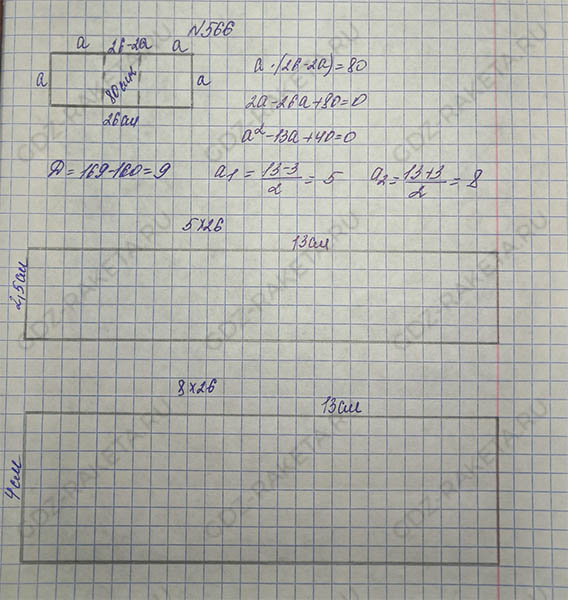 N566
a 26-2a a
a · (26-2a) = 80
a 80 a
26 см
2a-26a+80=0
a²-13a+40=0
D = 169-160=9 a₁ = 13-3/2 = 5 a₂ = 13+3/2 = 8
5×26
13см
2,5см
8×26
13см
4см
GDZ-RAKETA.RU